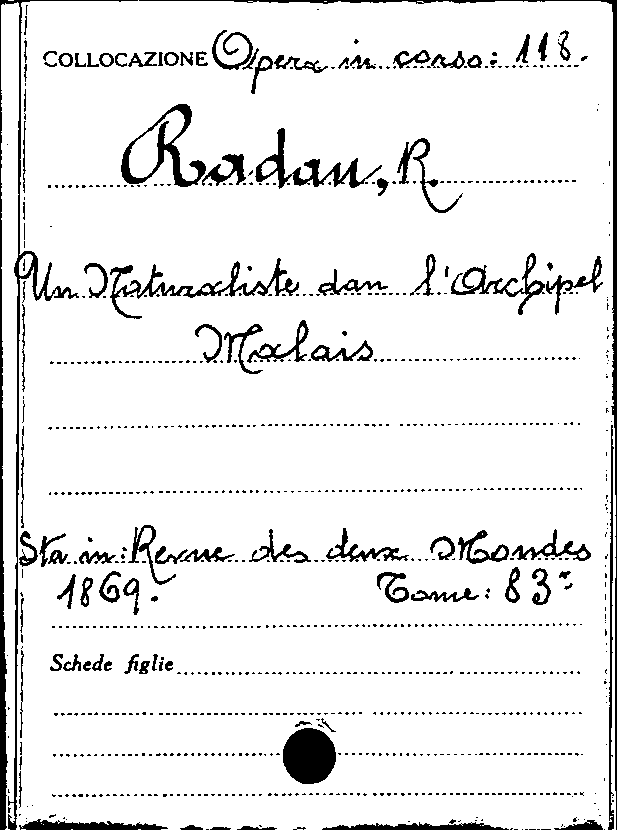 COLLOCAZIONE Opera in corso: 118.
Radau, R.
Un Naturaliste dan l'Archipel
Malais
Sta in: Revue des deux Mondes
1869. Tome: 83º
Schede figlie